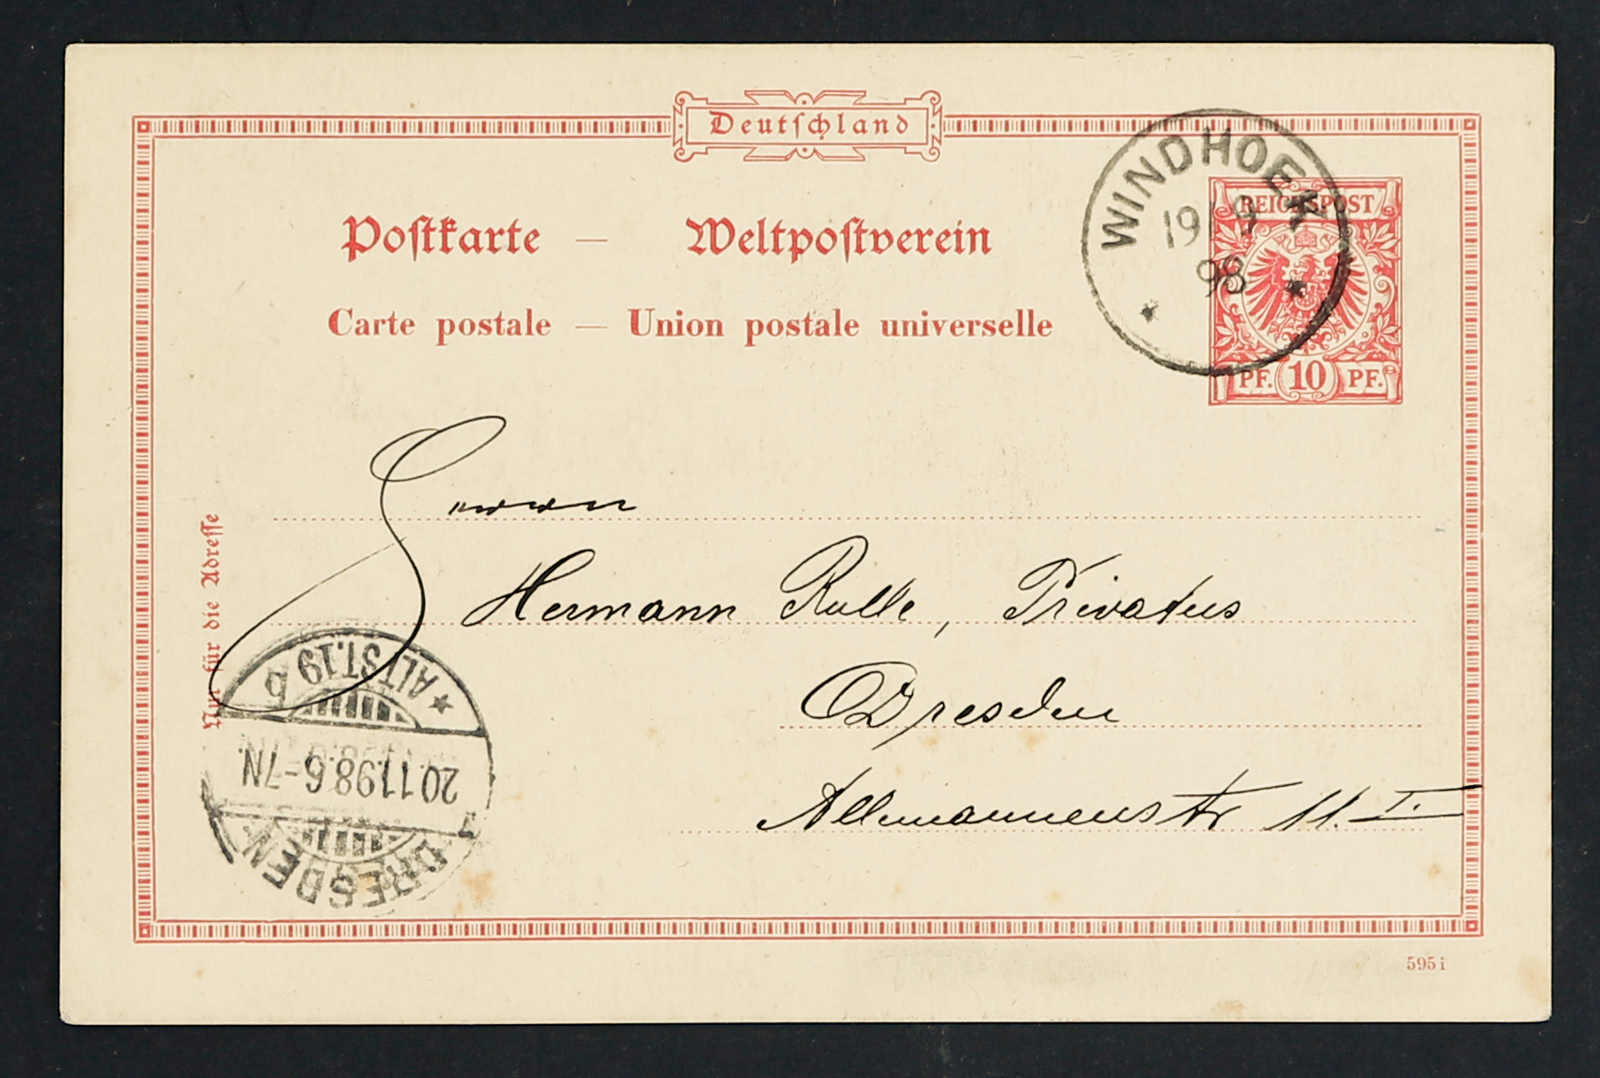 Deutschland
Postkarte — Weltpostverein
Carte postale — Union postale universelle
WINDHOEK
19/9
98
REICHSPOST
PF. 10 PF.
Herrn
Hermann Rülle, Privatus
Dresden
Allemannenstr 11. I.
Nur für die Adresse
DRESDEN
20.11.98.6-7N.
* ALTST.19 b
595 i